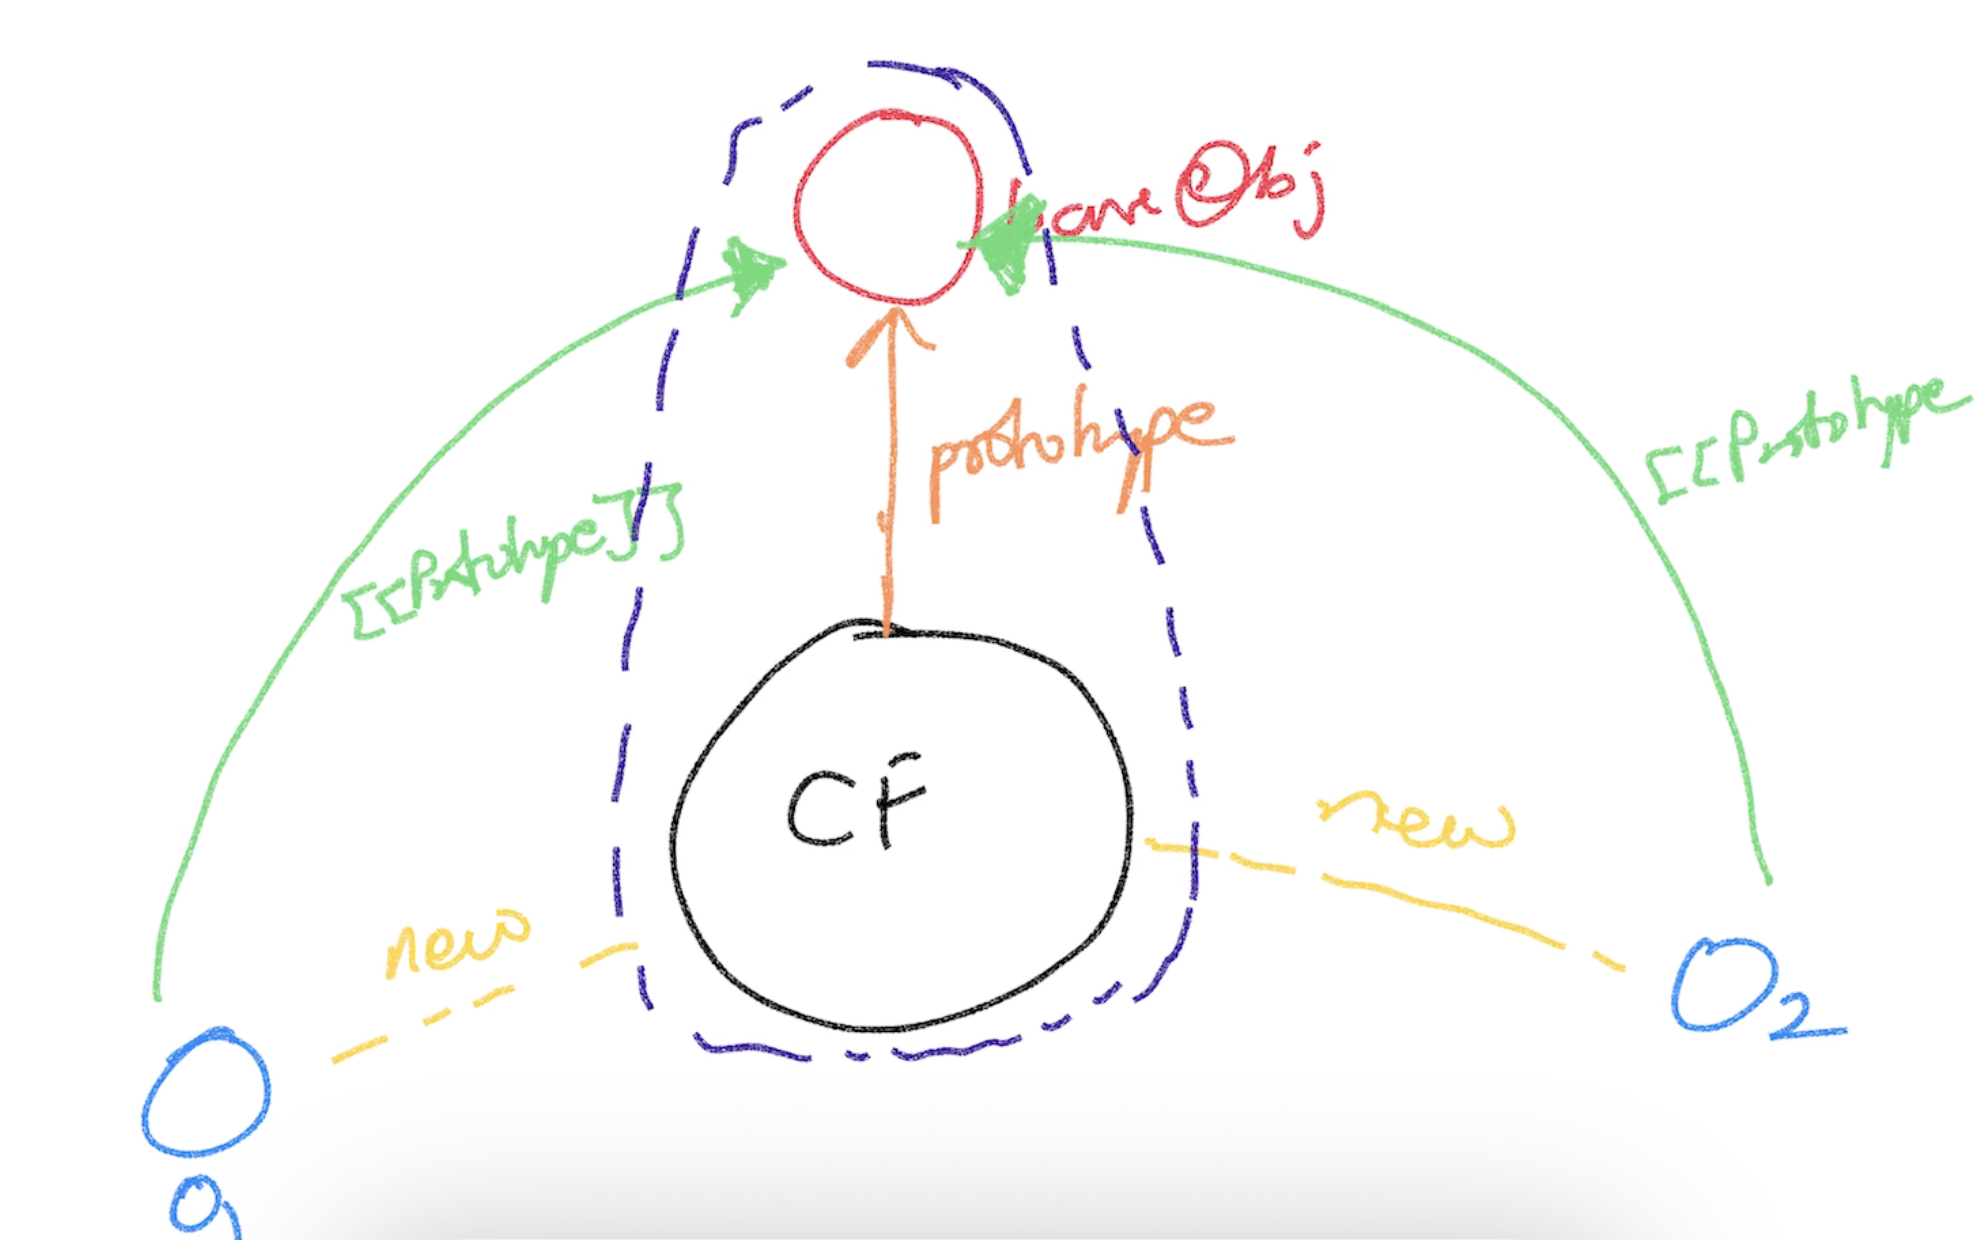 baseObj
prototype
[[Prototype
[[Prototype]]
CF
new
new
O2
O1